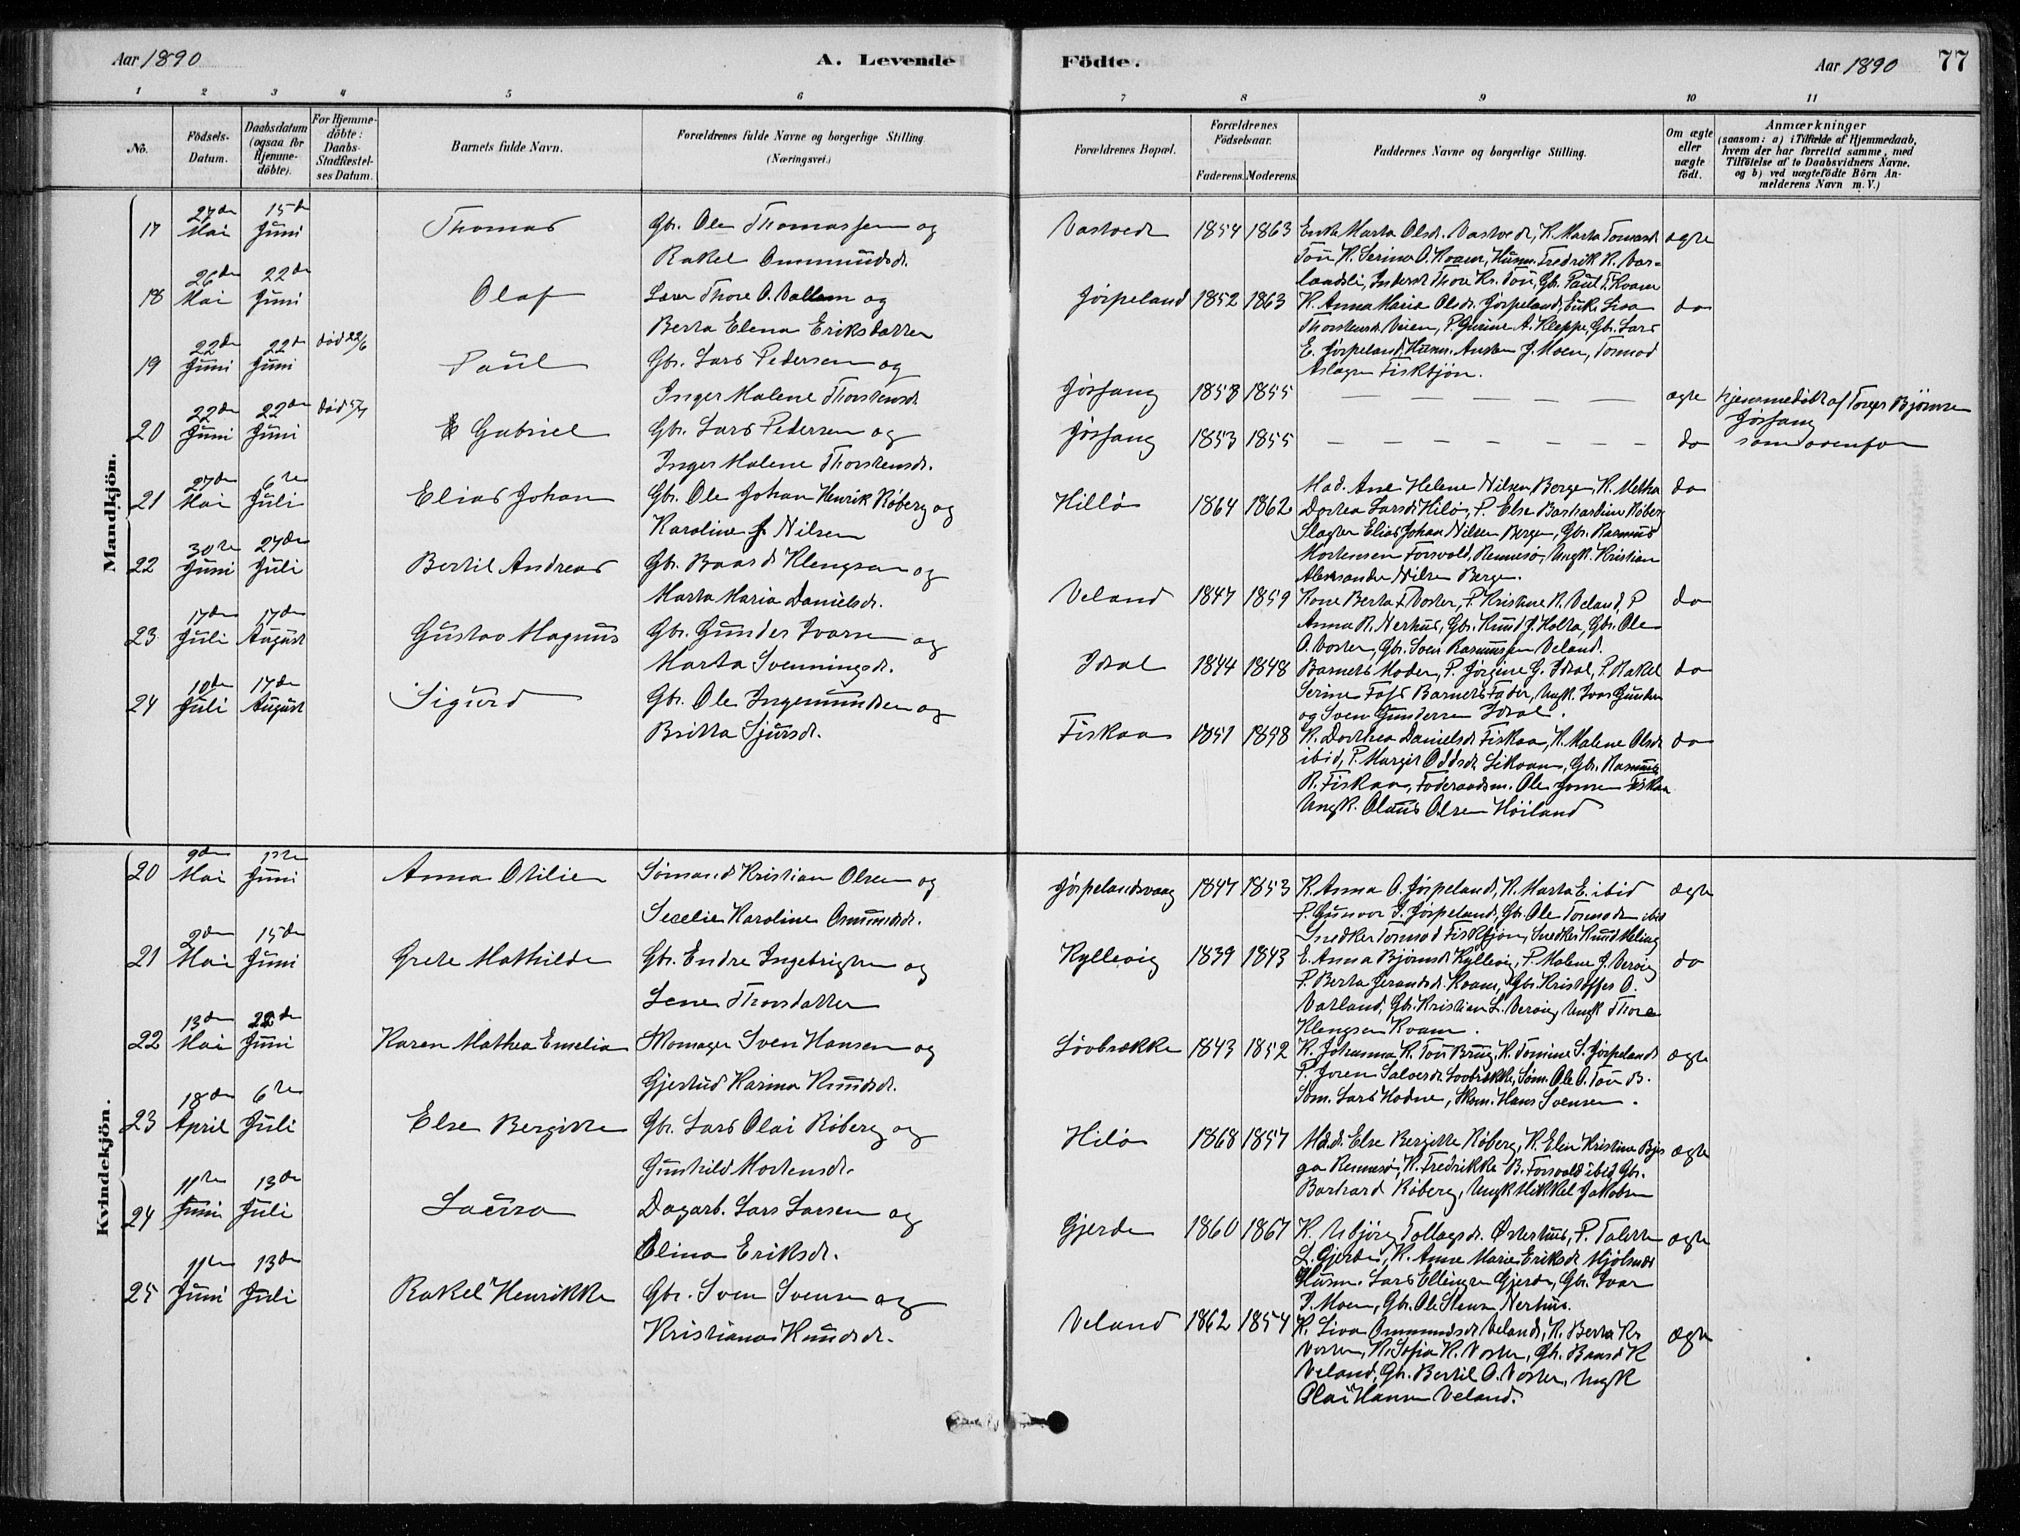 Aar 1890
A. Levende
Födte.
Aar 1890
77
1 2 3 4 5 6 7 8 9 10 11
No.
Födsels-Datum.
Daabsdatum (ogsaa for Hjemme-döbte).
For Hjemme-döbte: Daabs-Stadfæstel-ses Datum.
Barnets fulde Navn.
Forældrenes fulde Navne og borgerlige Stilling (Næringsvei.)
Forældrenes Bopæl.
Forældrenes Födselsaar.
Faderens. Moderens.
Faddernes Navne og borgerlige Stilling.
Om ægte eller uægte födt.
Anmærkninger
(saasom: a) i Tilfælde af Hjemmedaab, hvem der har forrettet samme, med Tilföielse af to Daabsvidners Navne, og b) ved uægtefödte Börn Anmelderens Navn m. V.)
Mandkjön.
17 27de Mai 15de Juni Thomas Gbr. Ole Thomassen og
Rakel Ommundsdr.
Vastvedt 1854 1863 Enke Marta Olsdr. Vastvedt, K. Marta Tomasdr.
Tou K. Serina O. Kvam, Husm. Fredrik K. Var-
landsli, Inderst Thore Kr. Tou, Gbr. Paul T. Kvam
ægte
18 26de Mai 22de Juni Olaf Lærer Thore O. Vallem og
Berta Elena Eriksdatter
Jørpeland 1852 1863 K. Anna Maria Olsdr. Jørpeland, Enke Siva
Thorstensdr. Veien, P. Gurine A. Kleppe, Gbr. Lars
E. Jørpeland, Husm. Austen J. Moen, Tormod
Aslagsen Fisktjøn.
do
19 22de Juni 22de Juni død 22/6 Paul Gbr. Lars Pedersen og
Inger Malene Thorstensdr.
Jøsfang 1853 1855 — — — — — — ægte hjemmedøbt af Torger Bjørnsen
Jøsfang
20 22de Juni 22de Juni død 5/7 Gabriel Gbr. Lars Pedersen og
Inger Malene Thorstensdr.
Jøsfang 1853 1855 — — — — — — do som ovenfor
21 27de Mai 6te Juli Elias Johan Gbr. Ole Johan Henrik Røberg og
Karoline J. Nilsen
Hillø 1864 1862 Mad. Ane Helene Nilsen Bergen, K. Metha
Dortea Larsdr. Hilø, P. Else Barhardine Røberg
Slagter Elias Johan Nilsen Bergen, Gbr. Rasmus
Mortensen Forsvold, Rennesø, Ungk. Kristian
Aleksander Nilsen Bergen.
do
22 30te Juni 27de Juli Bertil Andreas Gbr. Baard Klengsen og
Marta Maria Danielsdr.
Veland 1847 1859 Kone Berta T. Voster, P. Kristine K. Veland, P
Anna R. Nerhus, Gbr. Knud J. Holta, Gbr. Ole
O. Voster, Gbr. Sven Rasmussen Veland.
do
23 17de Juli 17de August Gustav Magnus Gbr. Gunder Ivarsen og
Marta Svenningsdr.
Idsal 1844 1848 Barnets Moder, P. Jørgine G. Idsal, P. Rakel
Serine Fosf. Barnets Fader, Ungk. Ivar Gundersen
og Sven Gundersen Idsal.
do
24 10de Juli 17de August Sigurd Gbr. Ole Ingemundsen og
Britta Sjursdr.
Fiskaa 1851 1848 K. Dorthea Danielsdr. Fiskaa, K. Malene Olsdr.
ibid, P. Margit Oddsdr. Leikvam, Gbr. Rasmus
R. Fiskaa, Føderaadsm. Ole Jonsen Fiskaa
Ungk. Olaus Olsen Høiland
do
Kvindekjön.
20 9de Mai 1ste Juni Anna Otilie Sømand Kristian Olsen og
Secelie Karoline Osmundsdr.
Jørpelandsvaag 1847 1853 K. Anna O. Jørpeland, K. Marta E. ibid
P. Gunvor I. Jørpeland, Gbr. Ole Tormodsen ibid
Snedker Tormod Fisktjøn, Snedker Knud Meling
Ægte
21 2den Mai 15de Juni Grete Mathilde Gbr. Endre Ingebrigtsen og
Lene Thorsdatter
Kyllevig 1839 1843 E. Anna Bjørnsdr. Kyllevig, P. Malene J. Vervig
P. Berta Jerandsdr. Kvam, Gbr. Kristoffer O.
Varland, Gbr. Kristian L. Vervig Ungk Thore
Klengsen Kvam.
do
22 13de Mai 22de Juni Karen Mathea Emelia Skomager Sven Hansen og
Gjertrud Karina Knudsdr.
Løvbrække 1843 1852 K. Johanna K. Tou Brug, K. Tomine S. Jørpeland
P. Joren Salvesdr. Løvbrække, Søm. Ole O. Tou B.
Søm. Lars Hodne, Skom. Hans Svensen.
Ægte
23 18de April 6te Juli Else Bergitte Gbr. Lars Olai Røberg og
Gunhild Mortensdr.
Hilø 1868 1857 Mad. Else Bergitte Røberg, K. Elen Kristine Byr-
ga Rennesø, K. Fredrikke B. Forsvold ibid, Gbr.
Barhard Røberg, Ungk Mikkel Jakobsen
Ægte
24 11te Juni 13de Juli Laura Dagarb. Lars Larsen og
Elina Eriksdr.
Gjerde 1860 1867 K. Asbjørg Tollagsdr. Østerhus, P. Talette
L. Gjerde, K. Anne Marie Eriksdr. Mjølsnes
Husm. Lars Ellingsen Gjerde, Gbr. Ivar
I. Moen, Gbr. Ole Stensen Nerhus.
Ægte
25 11te Juni 13de Juli Rakel Henrikke Gbr. Sven Svensen og
Kristiane Knudsdr.
Veland 1862 1854 K. Siva Ommundsdr. Veland, K. Berta Kr.
Voster, K. Sofia K. Voster, Gbr. Baard K
Veland, Gbr. Bertil O. Voster, Ungk
Olai Hansen Veland.
Ægte